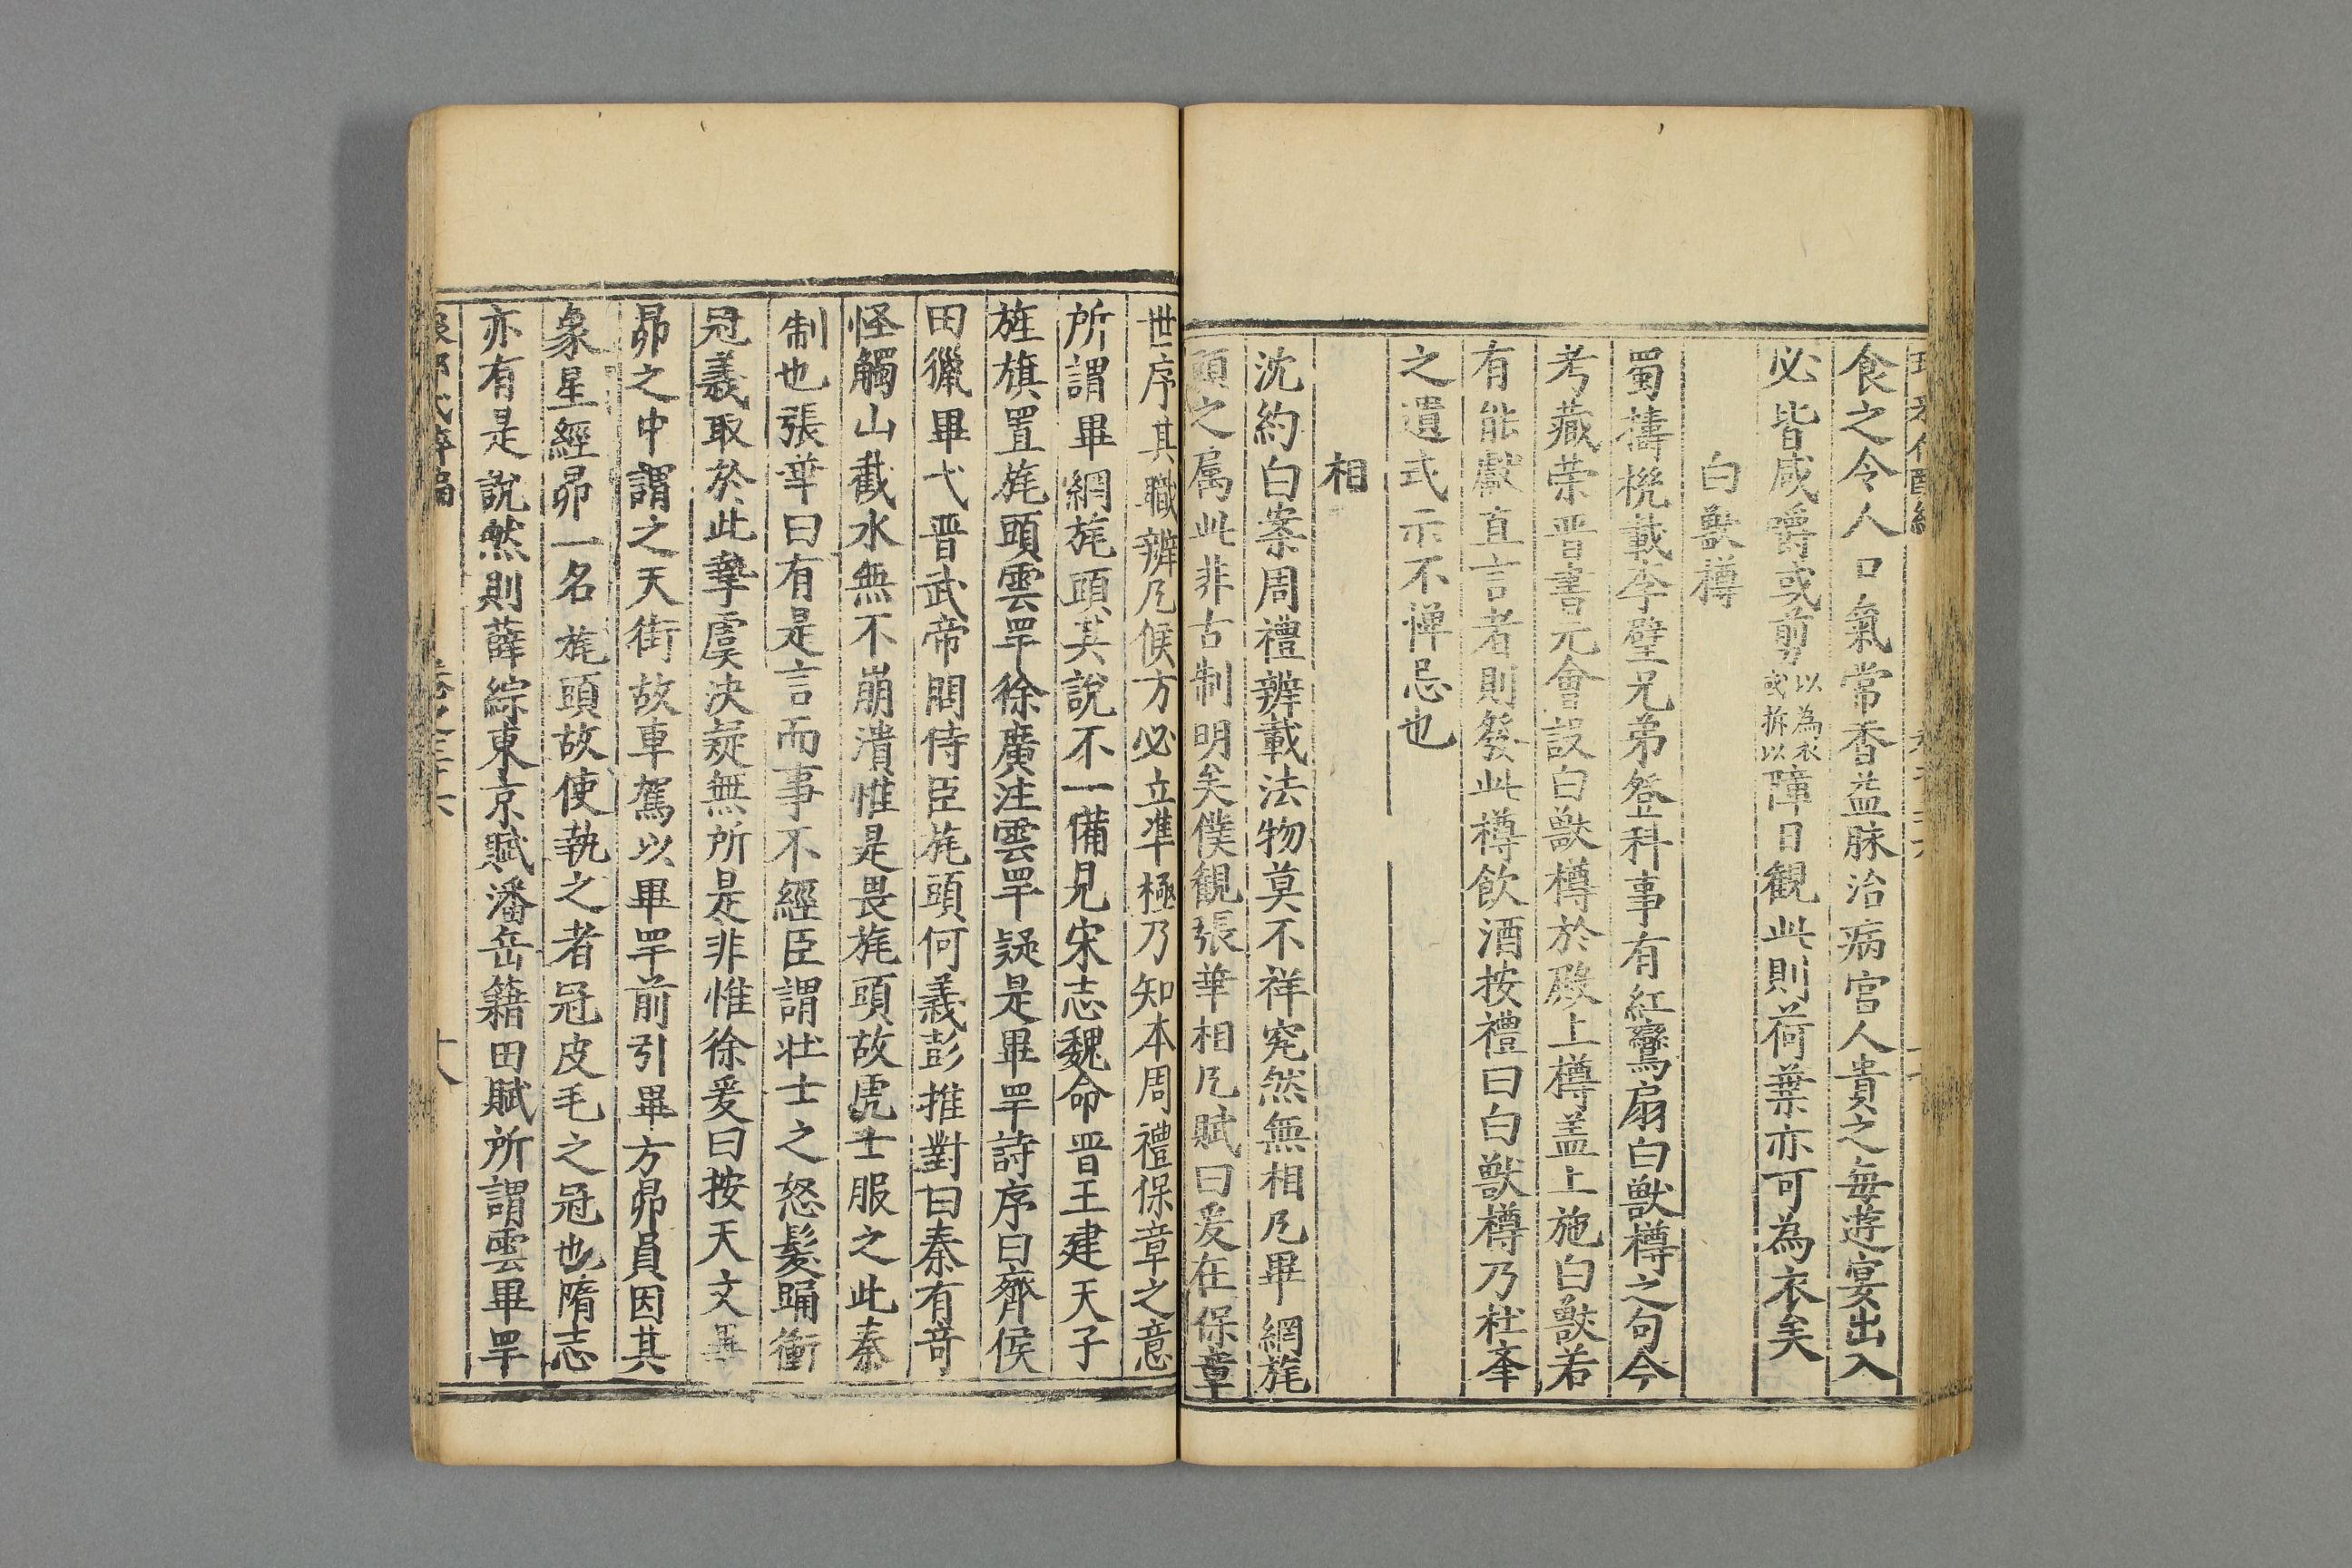 食之令人口氣常香益脉治病宫人貴之每遊宴出入
必皆咸嚼或剪以為衣或折以障日観此則荷葉亦可為衣矣
白獸樽
蜀檮杌載李壁兄弟登科事有紅鸞扇白獸樽之句今
考藏荣晋書元會設白獸樽於殿上樽盖上施白獸若
有能獻直言者則發此樽飲酒按禮曰白獸樽乃杜夆
之遺式示不憚忌也
相
沈約白案周禮辨載法物莫不祥究然無相凡畢網旄
頭之属此非古制明矣僕観張華相凡賦曰爰在保章
世序其職辨凡候方必立準極乃知本周禮保章之意
所謂畢網旄頭其說不一備見宋志魏命晋王建天子
旌旗置旄頭雲罕徐廣注雲罕疑是畢罕詩序曰齊侯
田獵畢弋晋武帝問侍臣旄頭何義彭推對曰秦有竒
怪觸山截水無不崩潰惟是畏旄頭故虎士服之此秦
制也張華曰有是言而事不經臣謂壮士之怒髮踊衝
冠義取於此摯虞决疑無所是非惟徐爰曰按天文畢
昴之中謂之天街故車駕以畢罕前引畢方昴員因其
象星經昴一名旄頭故使執之者冠皮毛之冠也隋志
亦有是說然則薛綜東京賦潘岳籍田賦所謂雲畢罕
卷之三十六 十八